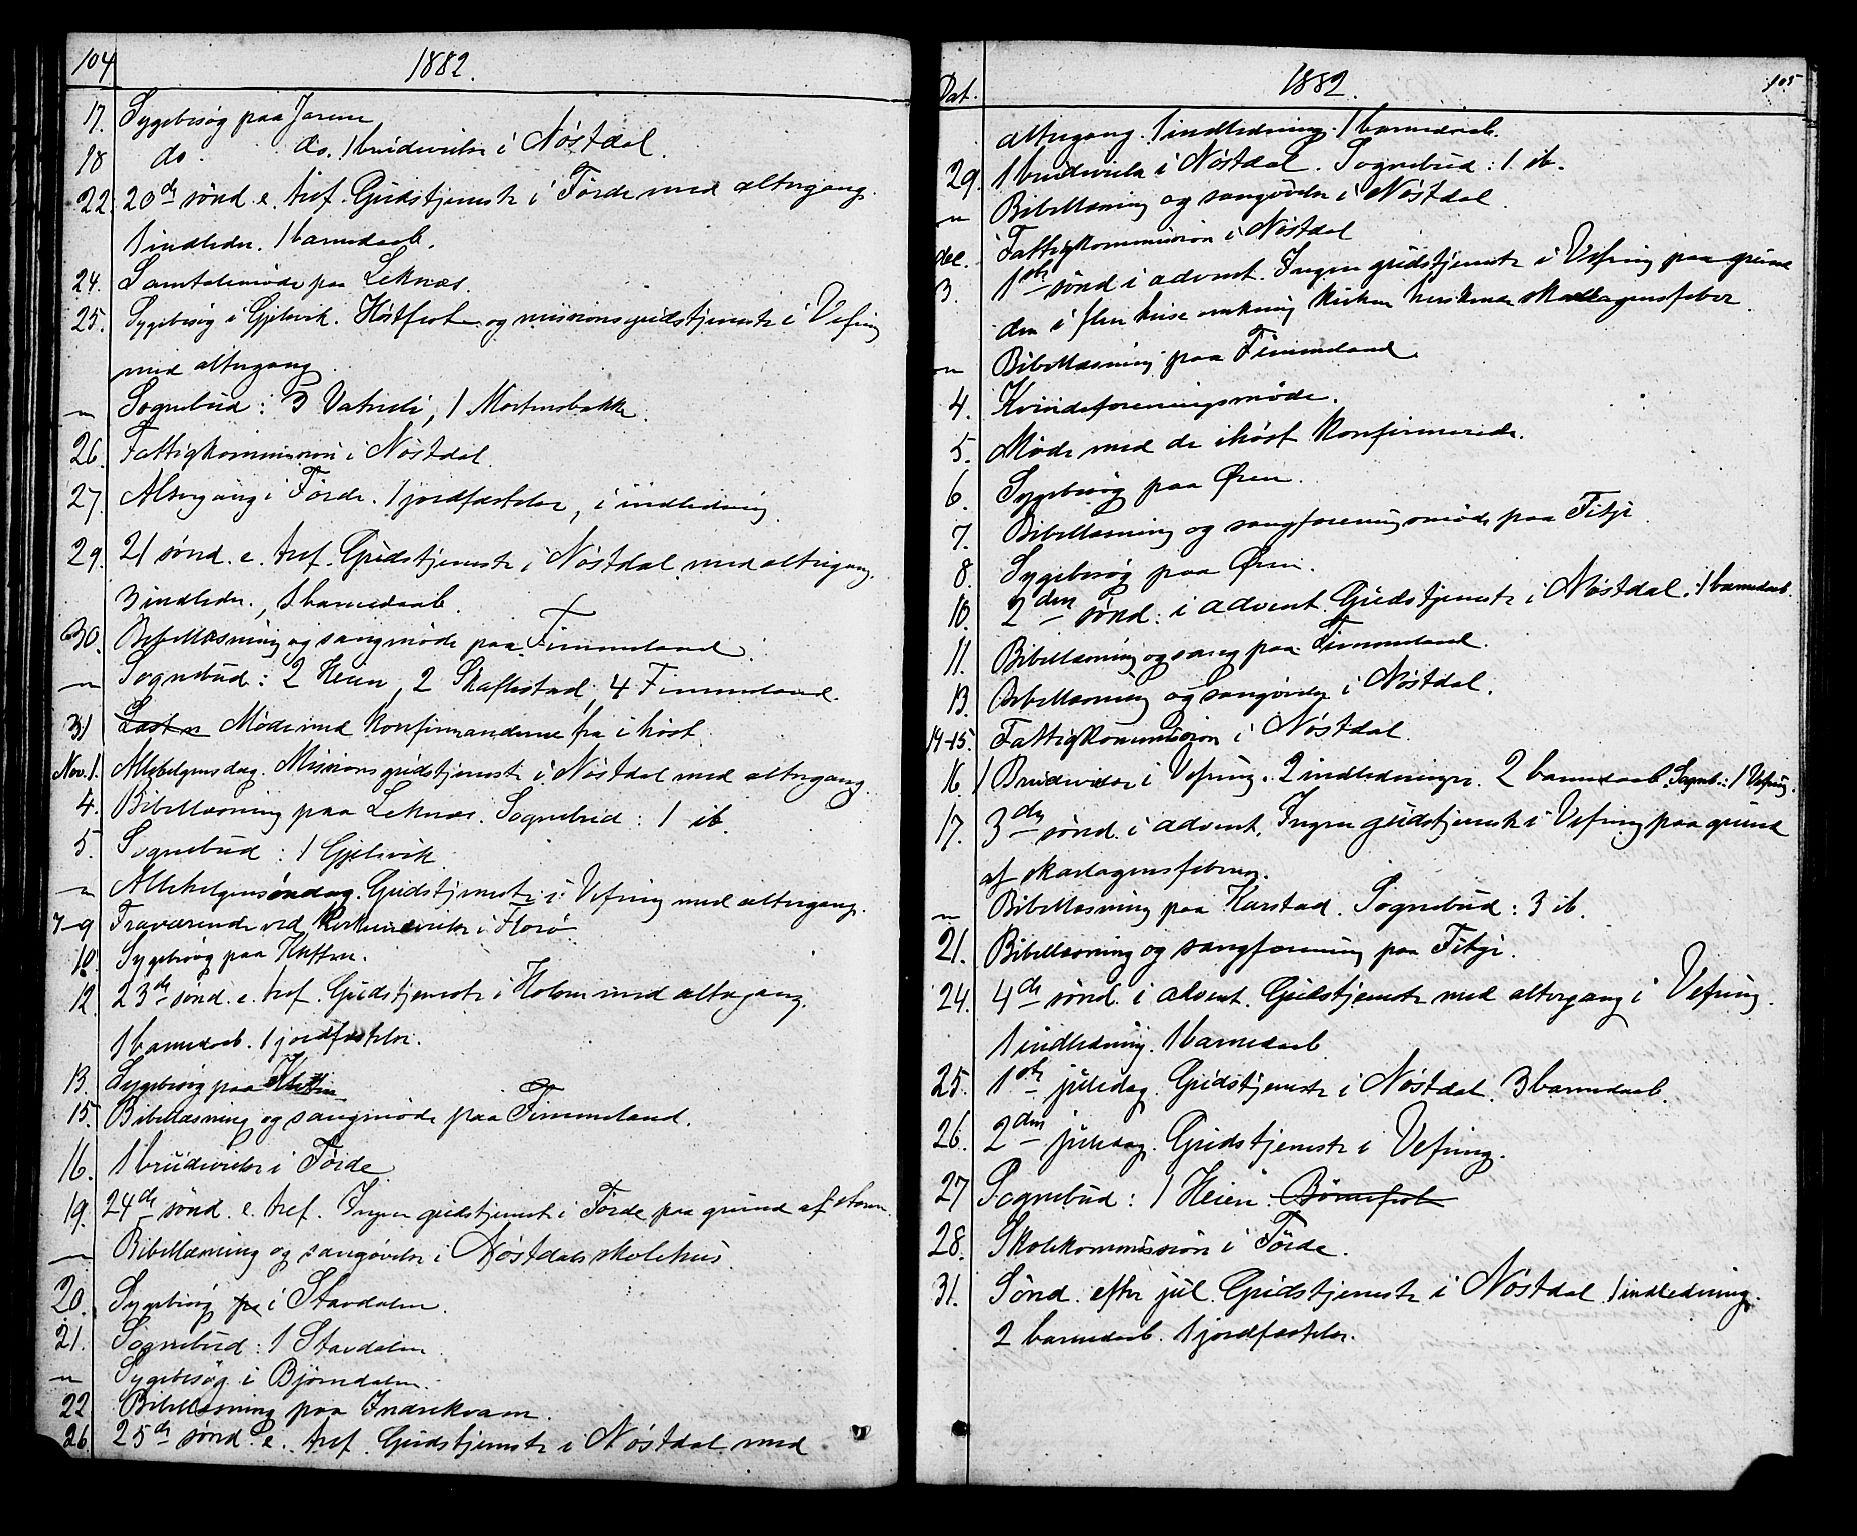 104 1882.
17. Sygebesøg paa Jarene
18 do. do. 1 brudevielse i Nøstdal.
22. 20de sønd. e. tref. Gudstjeneste i Førde med altergang.
1 indleder. 1 barnedaab.
24. Samtalemøde paa Leknæs.
25. Sygebesøg i Gjelsvik. Høstfest og missionsgudstjeneste i Vefring
med altergang
" Sognebud: 3 Vatneli, 1 Mortensbakke.
26. Fattigkommission i Nøstdal.
27. Altergang i Førde. 1 jordfæstelse, 1 indledning.
29. 21 sønd. e. tref. Gudstjeneste i Nøstdal med altergang.
3 indleder., 1 barnedaab.
30. Bibellæsning og sangmøde paa Fimmeland.
" Sognebud: 2 Heien, 2 Skaflestad, 4 Fimmeland.
31 Møde med konfirmanderne fra i høst.
Nov. 1. Allehelgensdag. Missionsgudstjeneste i Nøstdal med altergang.
4. Bibellæsning paa Leknæs. Sognebud: 1 ib.
5. Sognebud: 1 Gjelsvik
" Allehelgensøndag. Gudstjeneste i Vefring med altergang.
7-9 Fraværende ved kirkeindvielse i Florø
10. Sygebesøg paa
12. 23de sønd. e. tref. Gudstjeneste i Holsen med altergang.
1 barnedaab. 1 jordfæstelse.
13. Sygebesøg paa
15. Bibellæsning og sangmøde paa Fimmeland.
16. 1 brudevielse i Førde
19. 24de sønd. e. tref. Ingen gudstjeneste i Førde paa grund af storm.
" Bibellæsning og sangøvelse i Nøstdals skolehus.
20. Sygebesøg paa i Stavdalen.
21. Sognebud: 1 Stavdalen
" Sygebesøg i Bjørndalen.
22 Bibellæsning paa Indrekvam.
26 25de sønd. e. tref. Gudstjeneste i Nøstdal med
Dat. 1882. 105
altergang. 1 indledning. 1 barnedaab.
29. 1 brudevielse i Nøstdal. Sognebud: 1. ib.
" Bibellæsning og sangøvelse i Nøstdal.
dec. Fattigkommission i Nøstdal
3. 1ste sønd i advent. Ingen gudstjeneste i Vefring paa grund
den i flere huse omkring kirken herskende skarlagensfeber
" Bibellæsning paa Fimmeland.
4. Kvindeforeningsmøde.
5. Møde med de ihøst konfirmerede.
6. Sygebesøg paa Øren.
7. Bibellæsning og sangforeningsmøde paa Fitje.
8. Sygebesøg paa Øren.
10. 2den sønd. i advent. Gudstjeneste i Nøstdal. 1 barnedaab.
11. Bibellæsning og sang paa Fimmeland.
13. Bibellæsning og sangøvelse i Nøstdal.
14-15. Fattigkommission i Nøstdal.
16. 1 Brudevielse i Vefring. 2 indledninger. 2 barnedaab. Sogneb.: 1 Vefring.
17. 3de sønd. i advent. Ingen gudstjeneste i Vefring paa grund
af skarlagensfeberen.
" Bibellæsning paa Karstad. Sognebud: 3 ib.
21. Bibellæsning og sangforening paa Fitje.
24. 4de sønd. i advent. Gudstjeneste med altergang i Vefring.
1 indledning. 1 barnedaab
25. 1ste juledag. Gudstjeneste i Nøstdal. 3 barnedaab.
26. 2den juledag. Gudstjeneste i Vefring.
27 Sognebud: 1 Heien. Børnefest
28. Skolekommission i Førde.
31. Sønd. efter jul. Gudstjeneste i Nøstdal. 1 indledning.
2 barnedaab. 1 jordfæstelse.